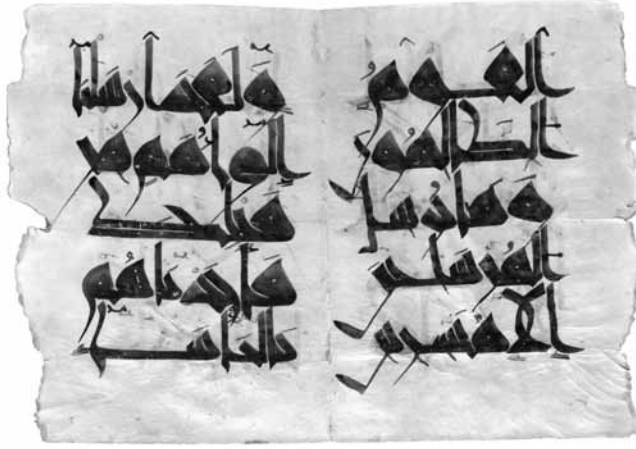 القوم
الظلمون
وما نرسل
المرسلين
الا مبشرين
ولقد ارسلنا
الى امم من
قبلك
فاخذناهم
بالباسا